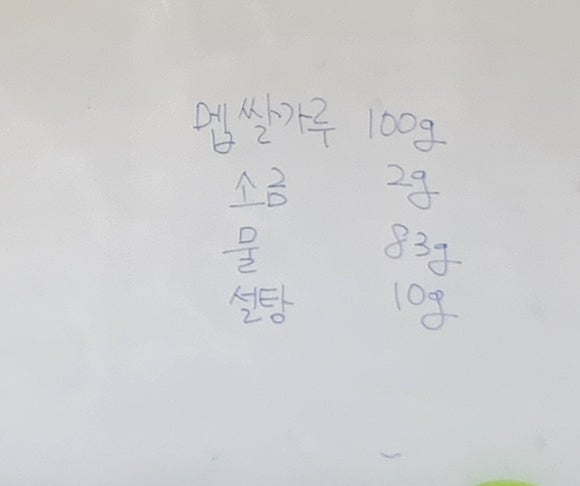 멥쌀가루 100g
소금 2g
물 83g
설탕 10g